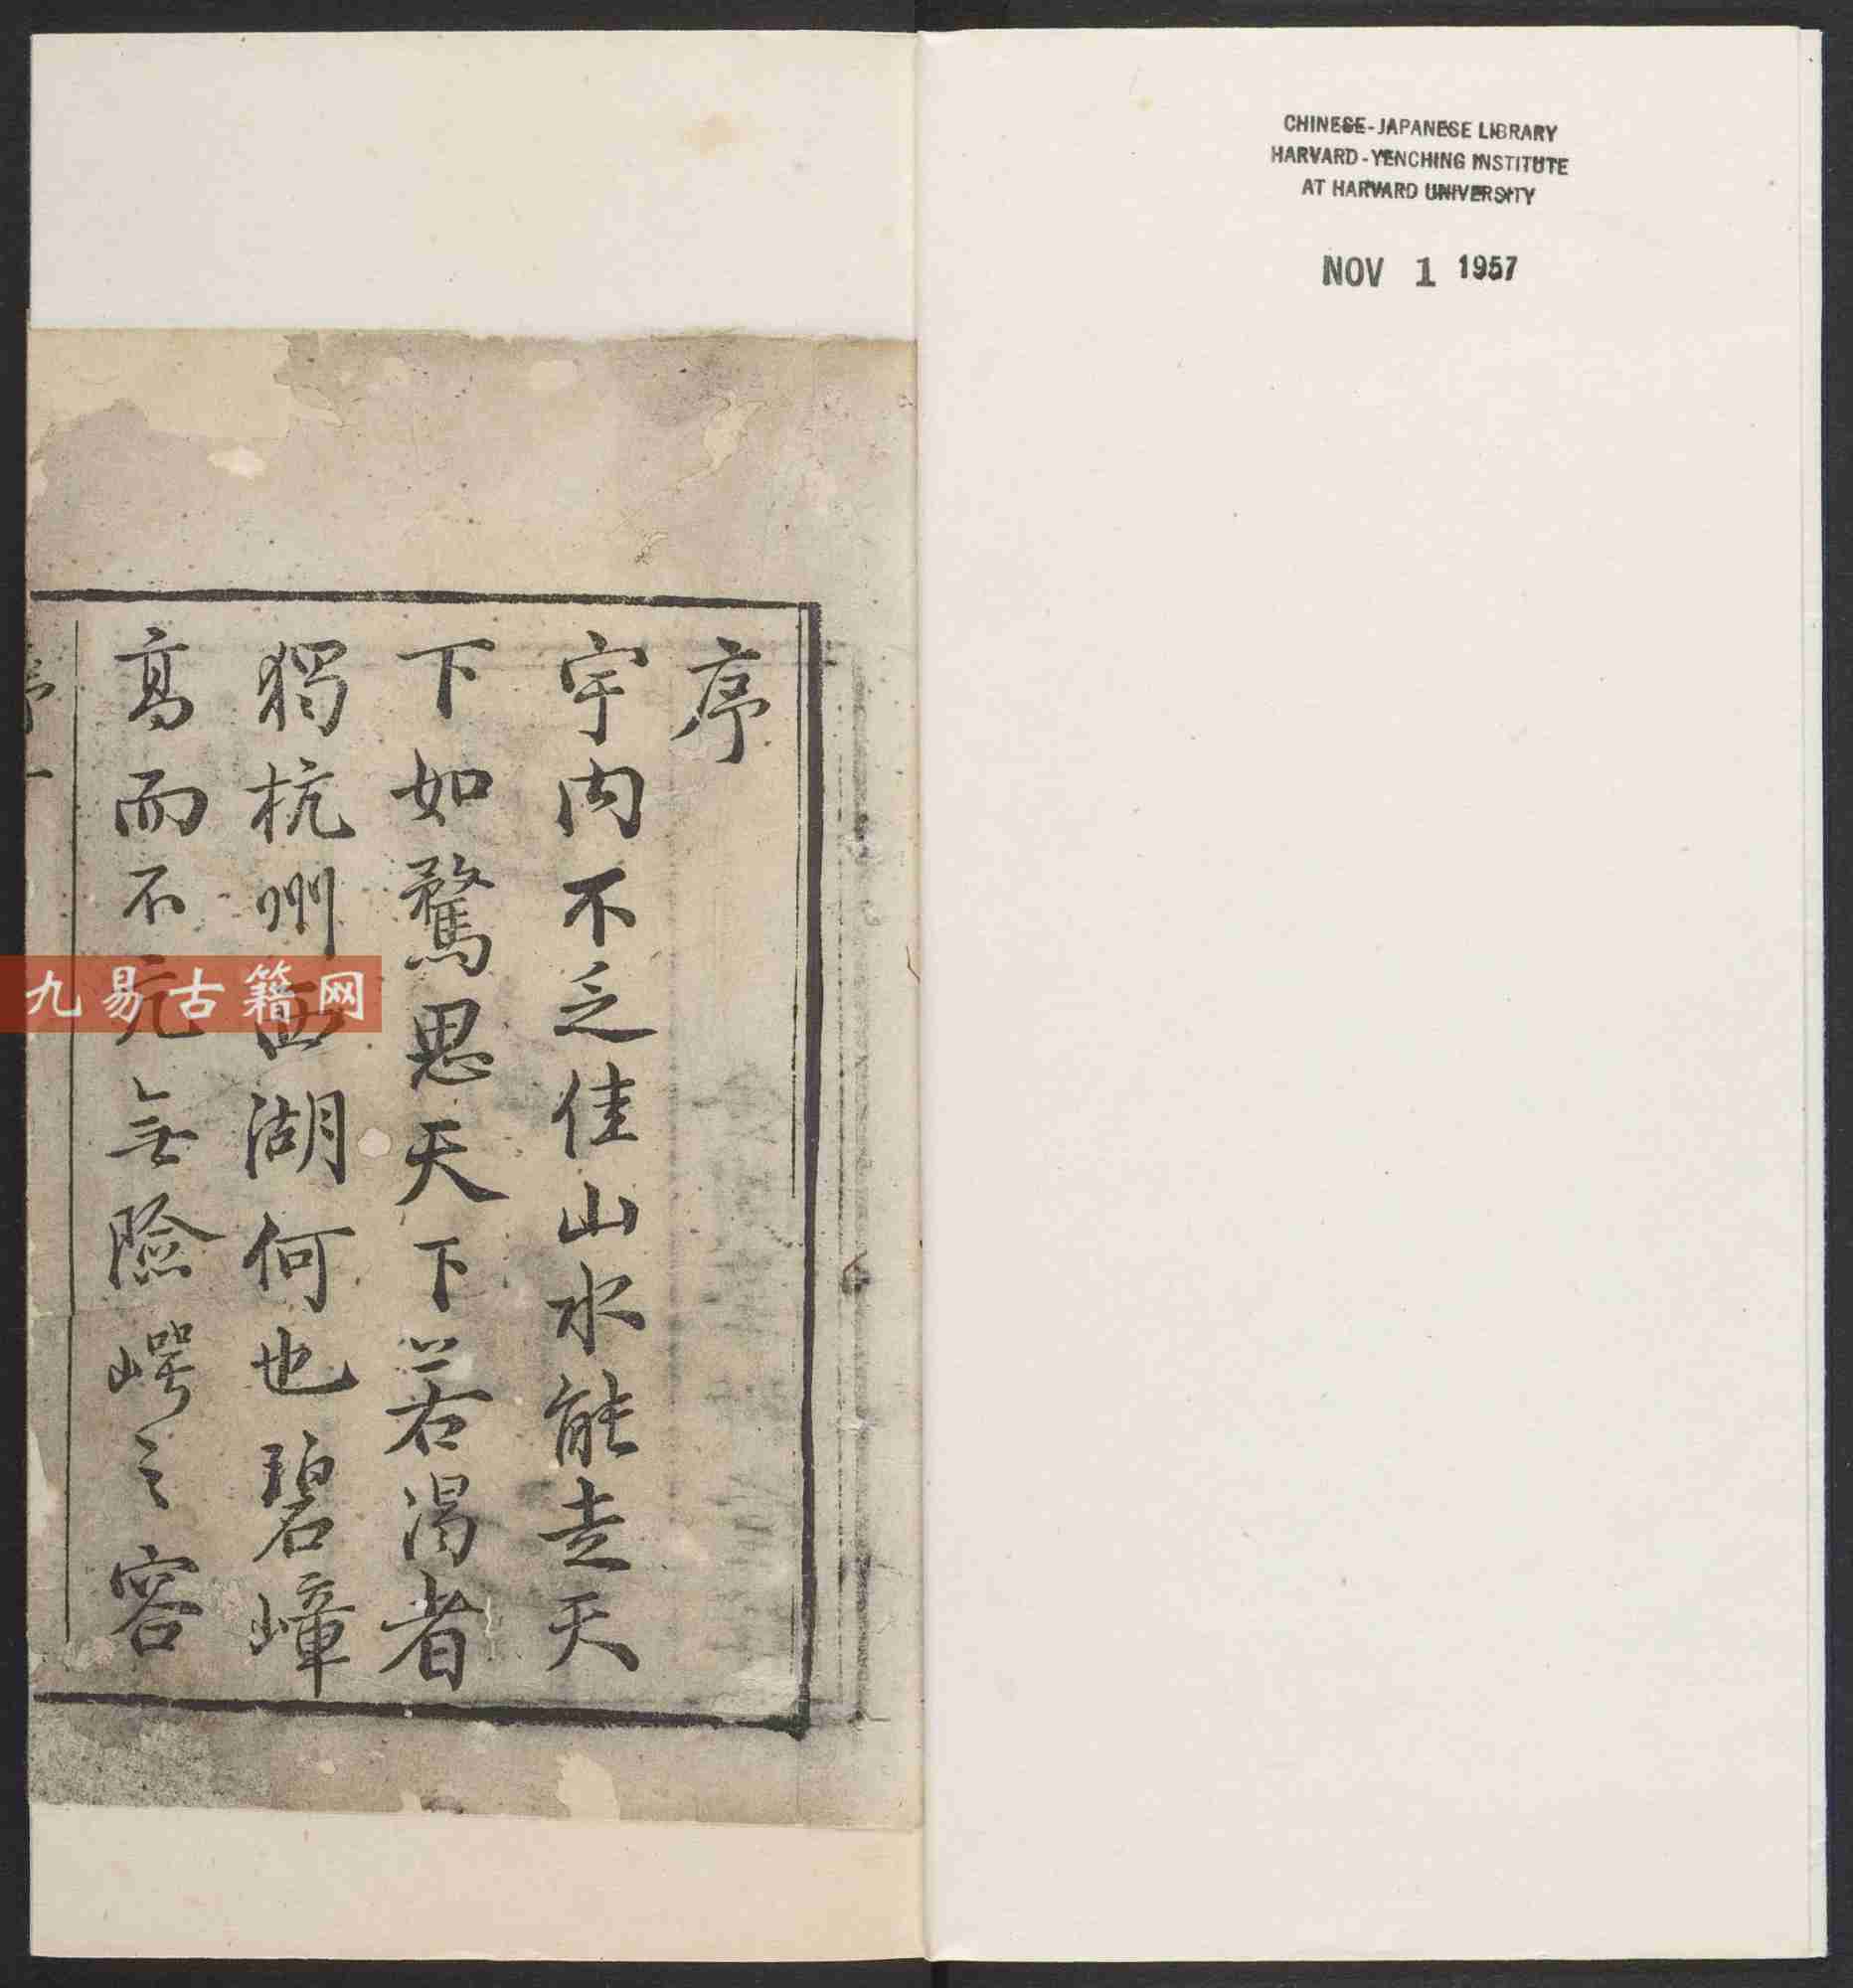 CHINESE-JAPANESE LIBRARY
HARVARD-YENCHING INSTITUTE
AT HARVARD UNIVERSITY
NOV 1 1957
序
宇内不乏佳山水能走天
下如騖思天下若渴者
獨杭州西湖何也碧嶂
高而不亢無險崿之容
序 一
九易古籍网